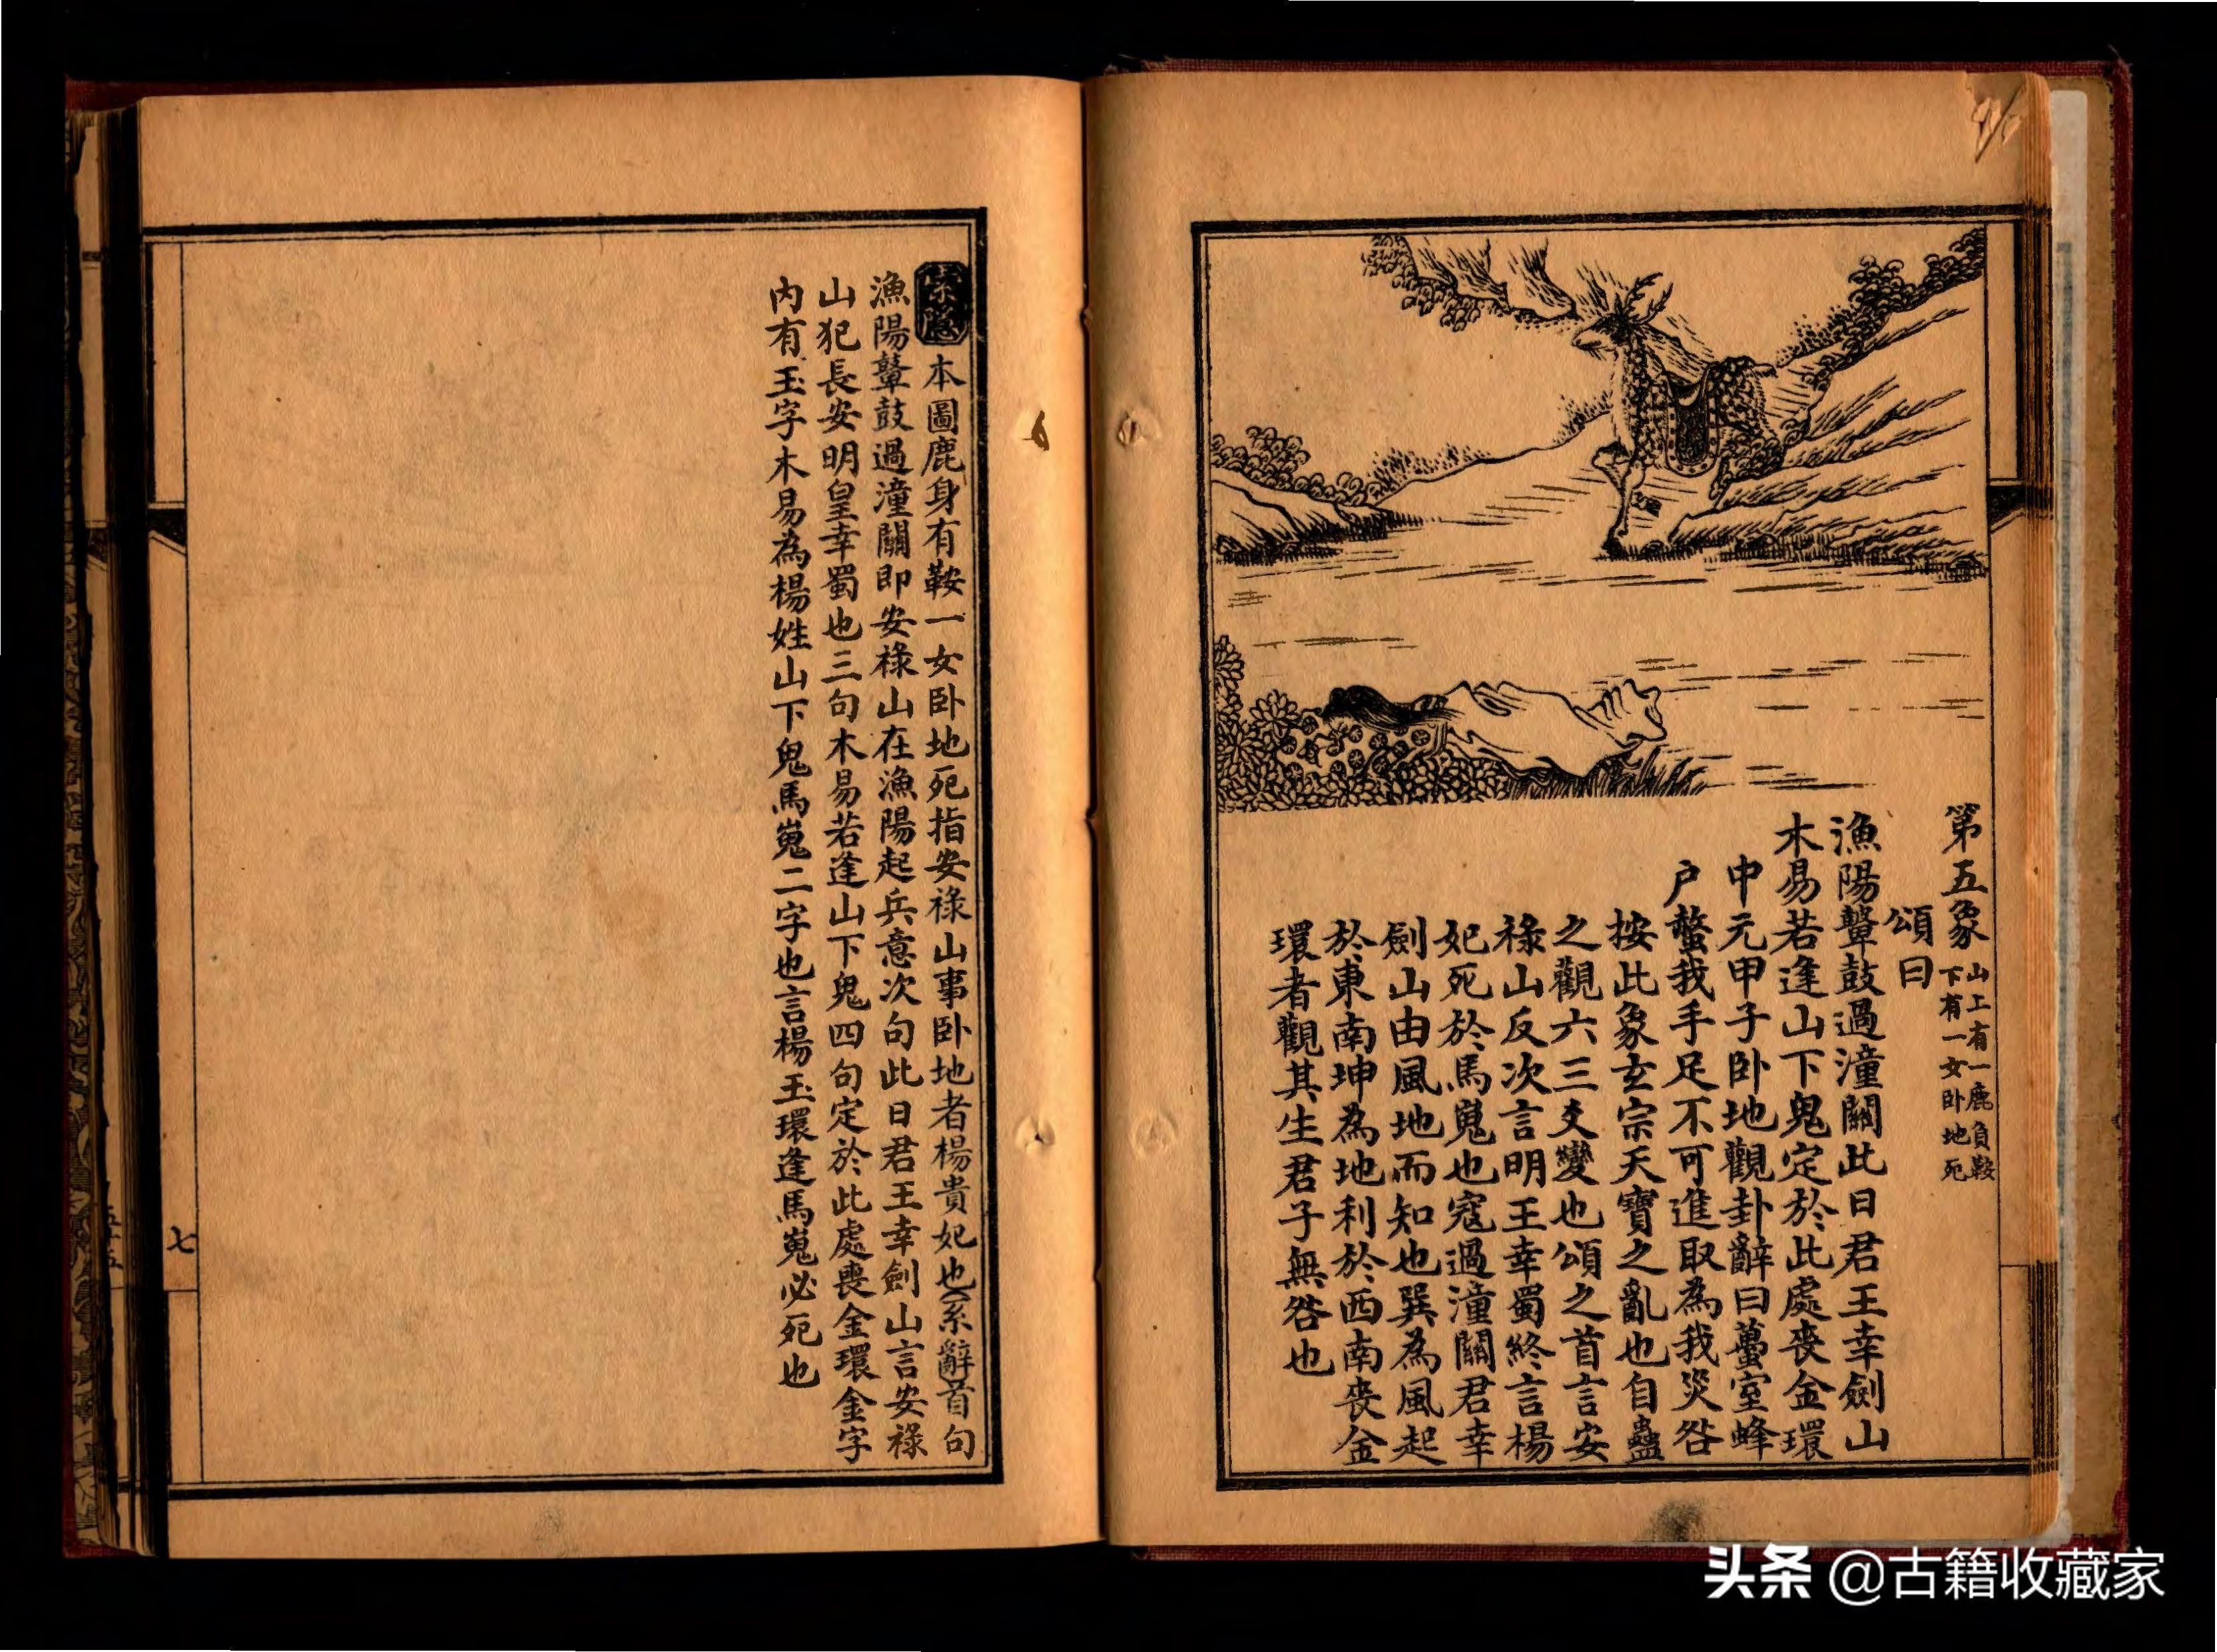 第五象
山上有一鹿負鞍
下有一女卧地死
頌曰
漁陽鼙鼓過潼關此日君王幸劍山
木易若逢山下鬼定於此處喪金環
中元甲子卧地觀卦辭曰蠆室蜂
户螫我手足不可進取為我災咎
按此象玄宗天寶之亂也自蠱
之觀六三爻變也頌之首言安
祿山反次言明王幸蜀終言楊
妃死於馬嵬也寇過潼關君幸
劍山由風地而知也巽為風起
於東南坤為地利於西南喪金
環者觀其生君子無咎也
索隱
本圖鹿身有鞍一女卧地死指安祿山事卧地者楊貴妃也系辭首句
漁陽鼙鼓過潼關即安祿山在漁陽起兵意次句此日君王幸劍山言安祿
山犯長安明皇幸蜀也三句木易若逢山下鬼四句定於此處喪金環金字
內有玉字木易為楊姓山下鬼馬嵬二字也言楊玉環逢馬嵬必死也
七
头条 @古籍收藏家